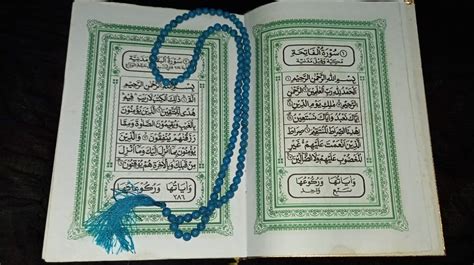 سُورَةُ الْفَاتِحَةِ ١
مَكِّيَّةٌ وَقِيلَ مَدَنِيَّةٌ
بِسْمِ اللهِ الرَّحْمٰنِ الرَّحِيْمِ
اَلْحَمْدُ لِلّٰهِ رَبِّ الْعٰلَمِيْنَ الرَّحْمٰنِ
الرَّحِيْمِ مٰلِكِ يَوْمِ الدِّيْنِ
اِيَّاكَ نَعْبُدُ وَاِيَّاكَ نَسْتَعِيْنُ
اِهْدِنَا الصِّرَاطَ الْمُسْتَقِيْمَ صِرَاطَ
الَّذِيْنَ اَنْعَمْتَ عَلَيْهِمْ غَيْرِ
الْمَغْضُوْبِ عَلَيْهِمْ وَلَا الضَّآلِّيْنَ
وَآيَاتُهَا وَرُكُوعُهَا
سَبْعٌ وَاحِدٌ
سُورَةُ
بِسْمِ اللهِ الرَّحْمٰنِ الرَّحِيْمِ
الٓمّٓ ذٰلِكَ الْكِتٰبُ لَا رَيْبَ فِيْهِ
هُدًى لِّلْمُتَّقِيْنَ الَّذِيْنَ يُؤْمِنُوْنَ
بِالْغَيْبِ وَيُقِيْمُوْنَ الصَّلٰوةَ وَمِمَّا
رَزَقْنٰهُمْ يُنْفِقُوْنَ وَالَّذِيْنَ
يُؤْمِنُوْنَ بِمَآ اُنْزِلَ اِلَيْكَ وَمَآ اُنْزِلَ
مِنْ قَبْلِكَ وَبِالْاٰخِرَةِ هُمْ يُوْقِنُوْنَ
وَآيَاتُهَا وَرُكُوعَاتُهَا
٢٨٦